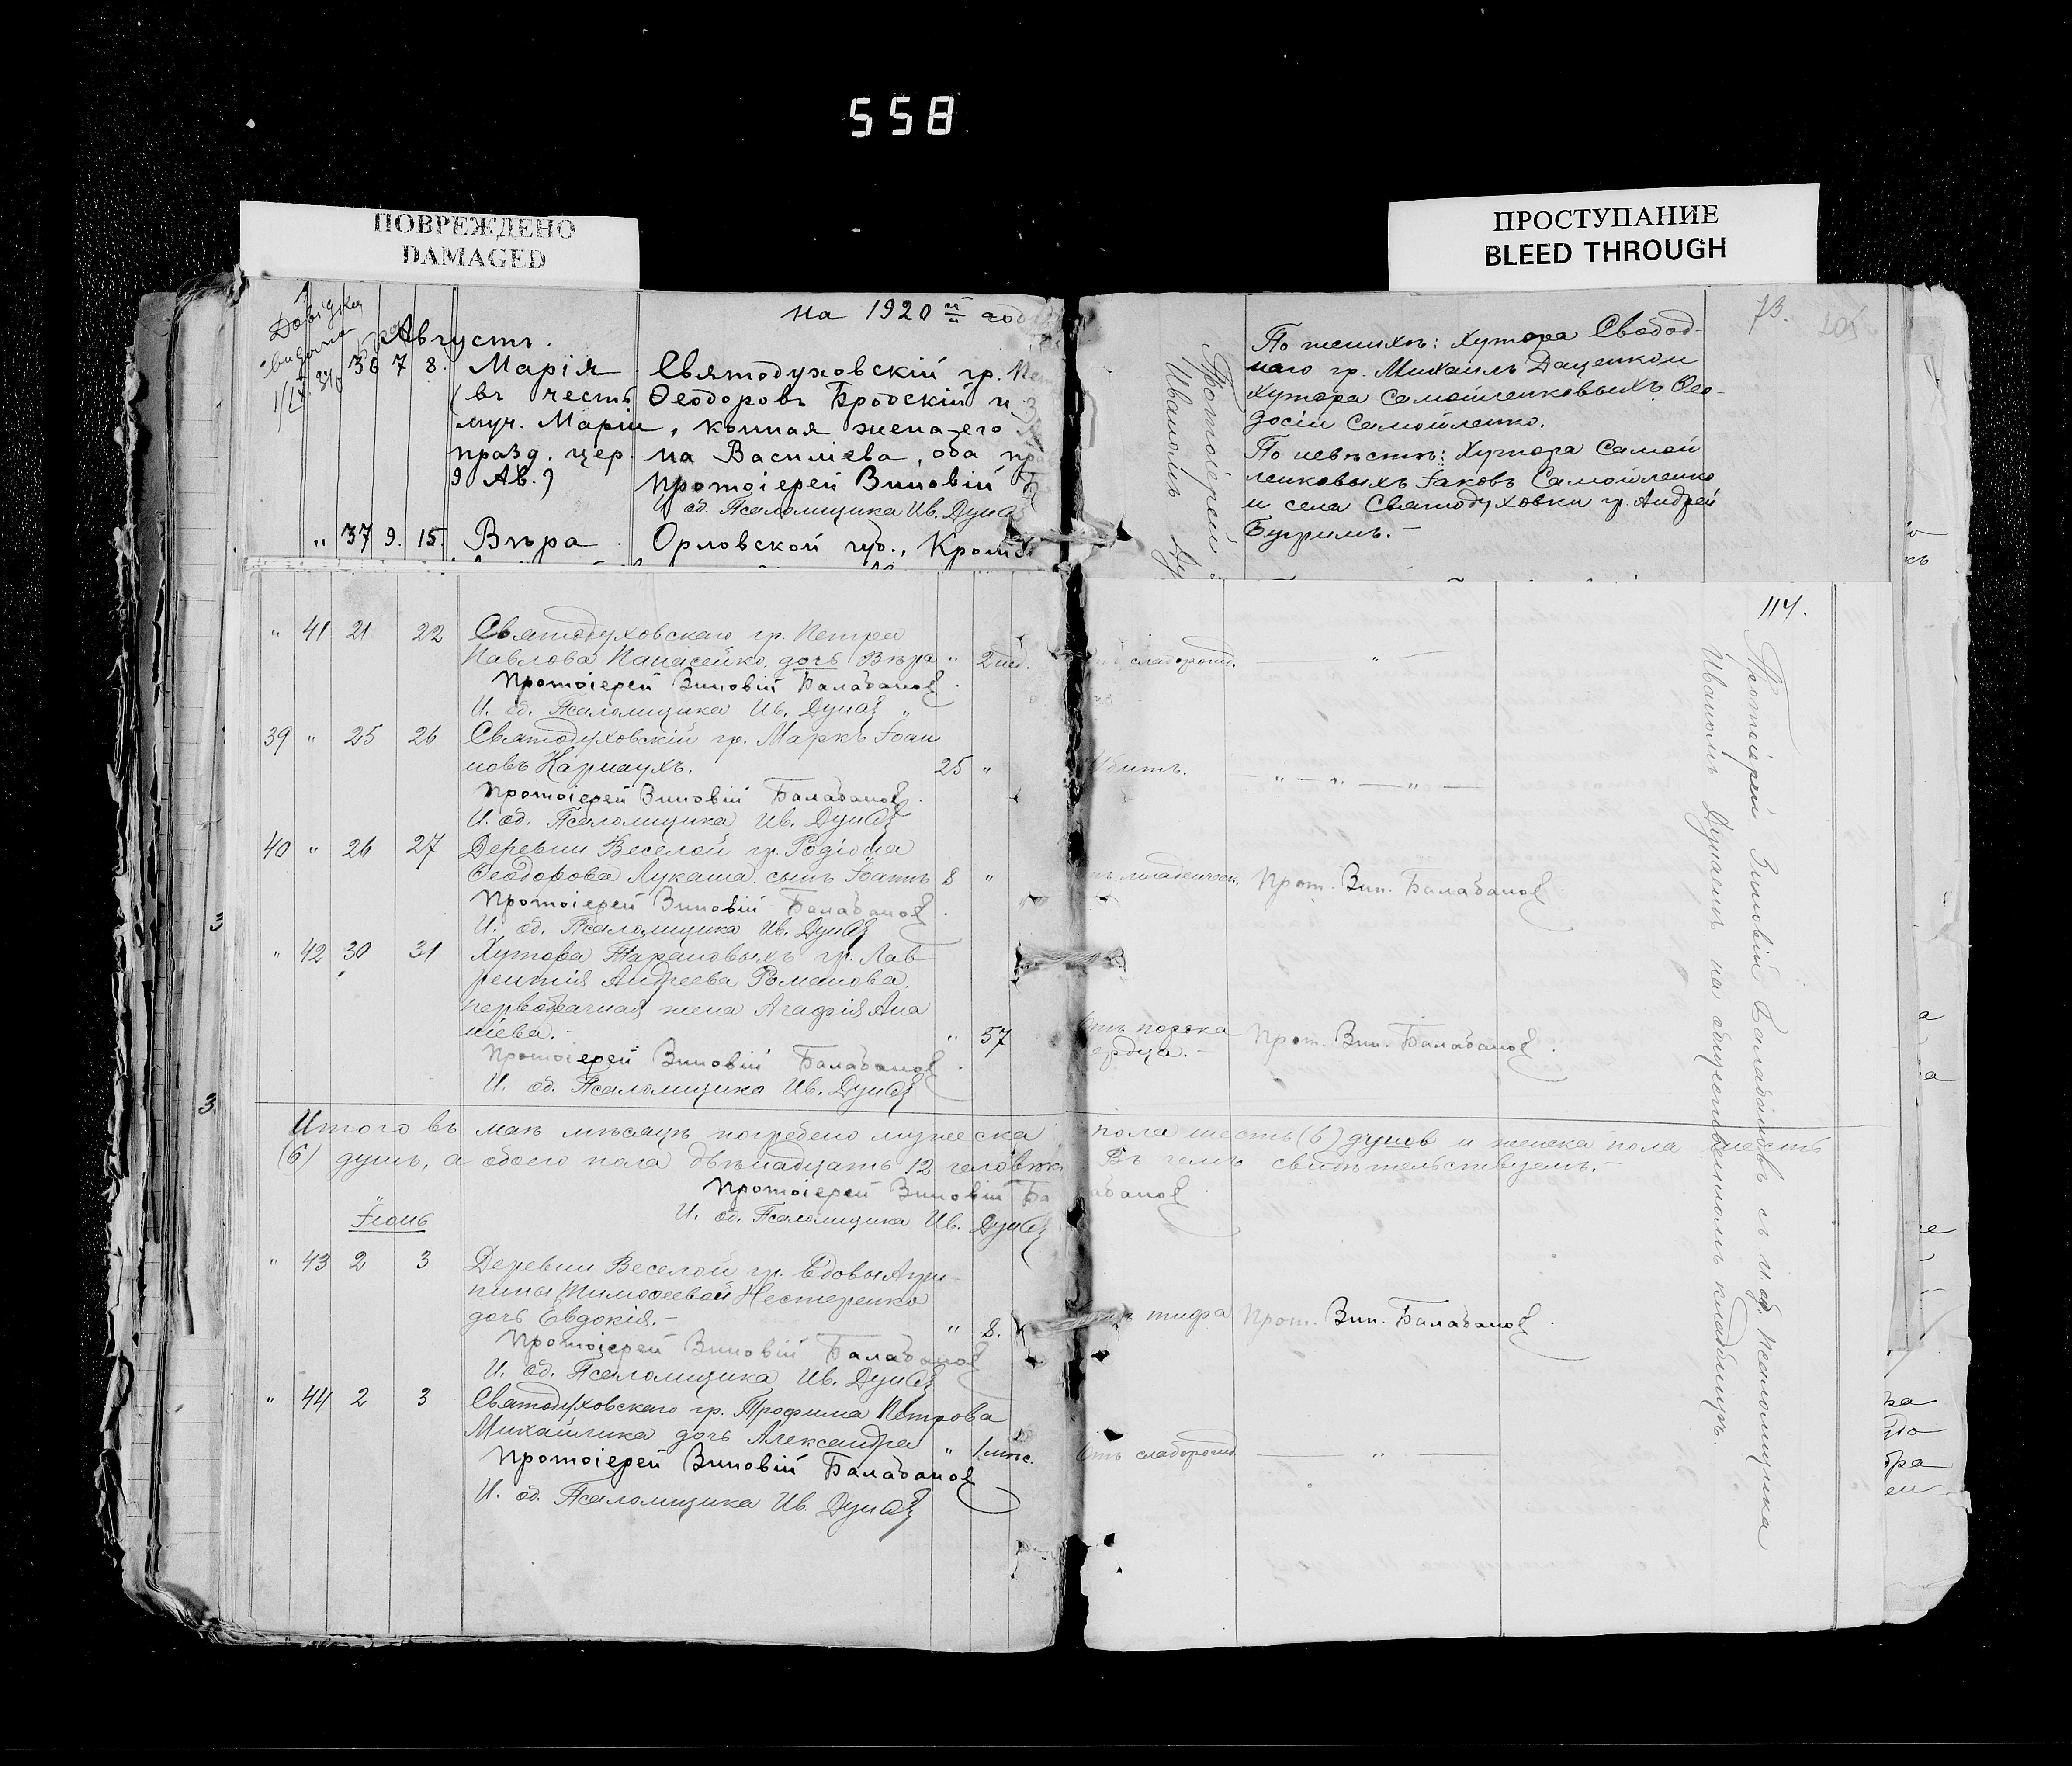 558
ПОВРЕЖДЕНО
DAMAGED
ПРОСТУПАНИЕ
BLEED THROUGH
на 1920 й год
Августъ.
36 7 8. Марія Святодуховскій гр.
(въ честь Ѳеодоровъ Бродскій и
муч. Маріи, конная жена его
празд. цер. на Василіева, оба
9 Ав.) Протоіерей Зиновій
И. об. Псаломщика Ив. Дунай
" 37 9. 15. Вѣра Орловской губ.,
73.
205
По женихѣ: Хутора Свобод-
наго гр. Михаилъ Даценко и
Хутора Самойленковыхъ Ѳео-
досій Самойленко.
По невѣстѣ: Хутора Самой
ленковыхъ Іаковъ Самойленко
и села Святодуховки гр. Андрей
Бугримъ.-
Протоіерей
Иваномъ
" 41 21 22 Святодуховскаго гр. Петра
Павлова Панасейко дочь Вѣра " 2 нед. слаборожд. "
Протоіерей Зиновій Балабановъ
И. об. Псаломщика Ив. Дунай
39 " 25 26 Святодуховскій гр. Маркъ Іоан
новъ Кармаухъ. 25 " Убитъ. " " "
Протоіерей Зиновій Балабановъ
И. об. Псаломщика Ив. Дунай
40 " 26 27 Деревни Веселой гр. Родіона
Ѳеодорова Лукаша сынъ Іоаннъ 8 " младенческ. Прот. Зин. Балабановъ
Протоіерей Зиновій Балабановъ
И. об. Псаломщика Ив. Дунай
" 42 30 31 Хутора Тарановыхъ гр. Лав
рентія Андреева Романова
первобрачная жена Агафія Ана
ніева.- " 57 отъ порока сердца.- Прот. Зин. Балабановъ
Протоіерей Зиновій Балабановъ
И. об. Псаломщика Ив. Дунай
Итого въ маѣ мѣсяцѣ погребено мужеска пола шесть (6) душъ и женска пола шесть
(6) душъ, а обоего пола двѣнадцать 12 человѣкъ Въ чемъ свидѣтельствуемъ.-
Протоіерей Зиновій Балабановъ
И. об. Псаломщика Ив. Дунай
Іюнь
" 43 2 3 Деревни Веселой гр. вдовы Агри
пины Тимоѳеевой Нестеренко
дочь Евдокія.- " 8. тифа Прот. Зин. Балабановъ
Протоіерей Зиновій Балабановъ
И. об. Псаломщика Ив. Дунай
" 44 2 3 Святодуховскаго гр. Трофима Петрова
Михайлика дочь Александра " 1 мѣс. Отъ слаборожд. "
Протоіерей Зиновій Балабановъ
И. об. Псаломщика Ив. Дунай
114.
Протоіерей Зиновій Балабановъ съ и. об. Псаломщика
Иваномъ Дунаемъ на общественномъ кладбищѣ.